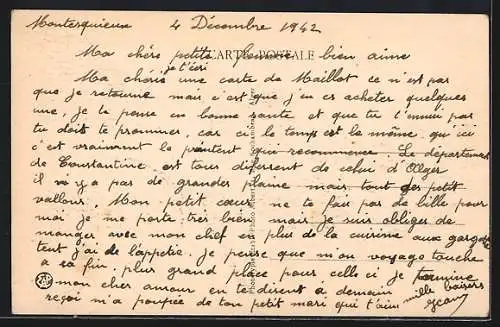 Montesquieux 4 Décembre 1942
CARTE POSTALE
Ma chère petite femme bien aimé
je t'écri
Ma chérie une carte de Maillot ce n'est pas
que je retourne mais c'est que j'en es acheter quelques
une, je te pense en bonne santé et que tu t'
tu doit te promener, car ici le temps est le même, qu'ici
c'est vraiment le printent qui recommence. Le département
de Constantine est tous different de celui d'Alger
il n'y a pas de grandes plaine mais tout des petit
vallons. Mon petit cœur ne te fais pas de bille pour
moi je me porte très bien mais je suis obliger de
manger avec mon chef en plus de la cuisine aux
tent j'ai de l'appetie. Je pense que mon voyage touche
a sa fin, plus grand place pour celle ci je termine
mon cher amour en te disent à demain mille baisers
reçoi m'a poupée de ton petit mari qui t'aim Jean